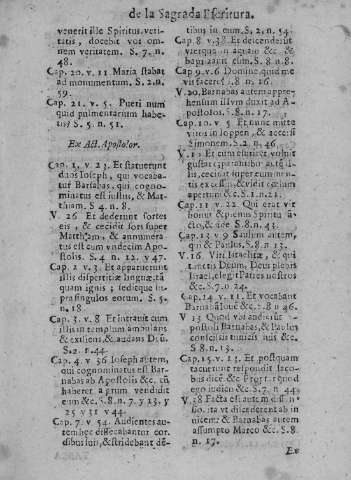 de la Sagrada Escritura.
venerit ille Spiritus veri-
tatis, docebit vos om
nem veritatem. S. 7. n.
48.
Cap. 20. v. 11 Maria stabat
ad monumentum. S. 2. n.
59.
Cap. 21. v. 5. Pueri num
quid pulmentarium habe-
tis? S. 5. n. 51.
Ex Act. Apostolor.
Cap. 1. v. 23. Et statuerunt
duos Ioseph, qui voca-
tur Barsabas, qui cogno-
minatus est iustus, & Mat-
thiam. S 4. n. 8.
V. 26 Et dederunt sortes
eis, & cecidit sors super
Matthiam, & annumera-
tus est cum vndecim Apo-
stolis. S. 4 n. 12. v 47.
Cap. 2 v. 3. Et apparuerunt
illis dispertitæ linguæ, tã
quam ignis; seditque su-
pra singulos eorum. S. 5.
n. 18
Cap. 3. v. 8 Et intravit cum
illis in templum ambulans
& exiliens, & laudans Deũ.
S. 2. n. 44.
Cap. 4. v 36 Ioseph autem,
qui cognominatus est Bar-
nabas ab Apostolis &c. cũ
haberet agrum vendidit
eum &c. S. 8. n. 7. y 13. y
25 y 31 y 44.
Cap. 7. v 54. Audientes au-
tem hæc dissecabantur cor-
dibus suis, & stridebant dẽ-
tibus in eum. S. 2. n. 54.
Cap. 8 v. 38. Et descenderunt
vterque in aquam &c. &
baptizauit eum. S. 8. n 8.
Cap 9. v. 6 Domine quid me
vis facere? S. 8 n. 16.
V. 20. Barnabas autem appre-
hensum illum duxit ad A-
postolos. S. 8. n. 17.
Cap. 10. v. 5 Et nunc mitte
viros in Ioppen, & accersi
Simonem. S. 2 n. 46.
V. 10 Et cum esuriret, voluit
gustare; parantibus autẽ il-
lis, cecidit super eum men-
tis excessus, & vidit cælum
apertum &c. S. 1. n. 21.
Cap 11 v 22. Qui erat vir
bonus & plenus Spiritu sã-
cto, & fide S. 8 n. 43.
Cap 13 v 9 Saulus autem,
qui & Paulus. S. 8 n. 13.
V. 16. Viri Israelitæ, & qui
timetis Deum, Deus plebis
Israel, elegit Patres nostros
&c. S. 7. n 24.
Cap. 14 v. 11. Et vocabant
Barnabã Iouẽ &c. S. 8 n 46.
V 13 Quod vbi audierunt A-
postoli Barnabas, & Paulus
conscissis tunicis suis &c.
S 8 n. 13.
Cap. 15. v. 13. Et postquam
tacuerunt respondit Iaco-
bus dicẽs &c.
ego iudico &c. S. 7. n. 44
V. 38 Facta est autem dissen-
sio, ita vt discederent ab in
vicem; & Barnabas autem
assumpto Marco &c. S. 8.
n. 17.
Ex